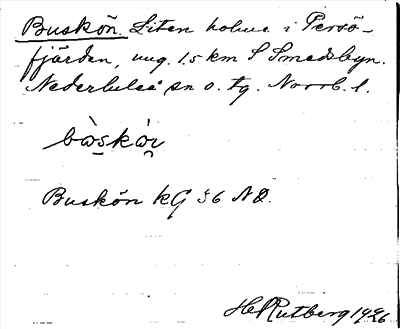 Buskön. Liten holme i Persö-
fjärden, ung. 1.5 km S Smedsbyn.
Nederluleå sn o. tg. Norrb. l.
Buskön kG 36 NO.
H Rutberg 1926